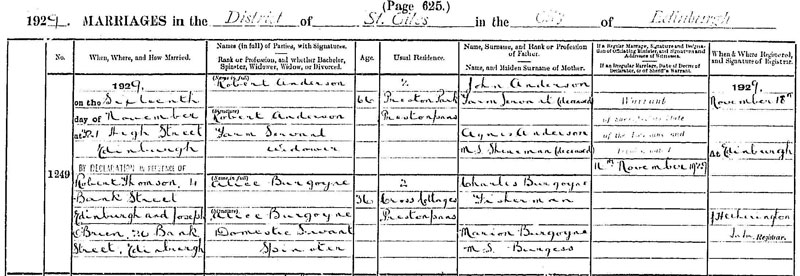 (Page 625.)
1929. MARRIAGES in the District of St. Giles in the City of Edinburgh
No.
When, Where, and How Married.
Name (in full) of Parties, with Signatures.
Rank or Profession, and whether Bachelor, Spinster, Widower, Widow, or Divorced.
Age.
Usual Residence.
Name, Surname, and Rank or Profession of Father.
Name, and Maiden Surname of Mother.
If a Regular Marriage, Signature and Designation of Officiating Minister, and Signatures and Addresses of Witnesses.
If an Irregular Marriage, Date of Decree of Declarator, or of Sheriff's Warrant.
When & Where Registered, and Signature of Registrar.
1249
1929,
on the Sixteenth
day of November
at High Street
Edinburgh
BY DECLARATION IN PRESENCE OF
Robert Thomson, 11
Bank Street
Edinburgh and Joseph
O'Brien, Bank
Street, Edinburgh
(Name in full)
Robert Anderson
(Signature)
Robert Anderson
Farm Servant
Widower
66
Preston Park
Prestonpans
John Anderson
Farm Servant (deceased)
Agnes Anderson
M.S. (deceased)
Warrant
of the Lothians and
November 1929
(Name in full)
Alice Burgoyne
(Signature)
Alice Burgoyne
Domestic Servant
Spinster
36
2
Cross Cottages
Prestonpans
Charles Burgoyne
Fisherman
Marion Burgoyne
M.S. Burgess
1929.
November 18th
at Edinburgh
J Hetherington
Registrar.